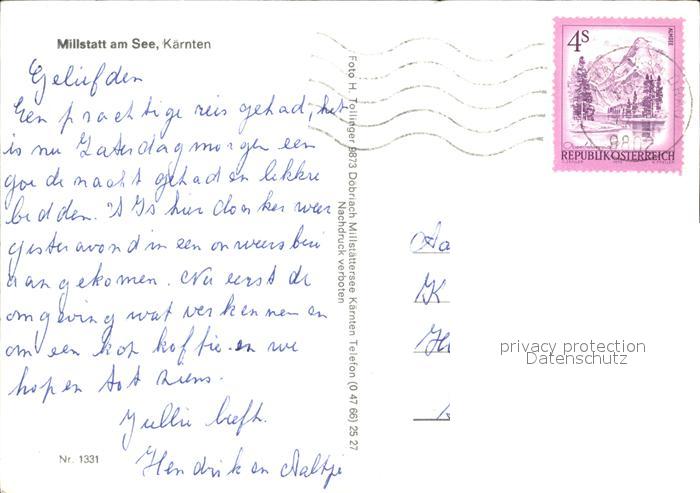 Millstatt am See, Kärnten
Geliefden
Een prachtige reis gehad, het
is nu Zaterdagmorgen een
goede nacht gehad en lekkre
bedden. 't Is hier donker weer
gisteravond in een onweersbui
aangekomen. Nu eerst de
omgeving wat verkennen en
om een kop koffie en we
hopen tot ziens.
Jullie liefh.
Hendrik en Aaltje
Nr. 1331
Foto H. Tollinger 9873 Döbriach Millstättersee Kärnten Telefon (0 47 66) 25 27
Nachdruck verboten
4S
ALMSEE
REPUBLIK ÖSTERREICH
Aa
K
privacy protection
Datenschutz